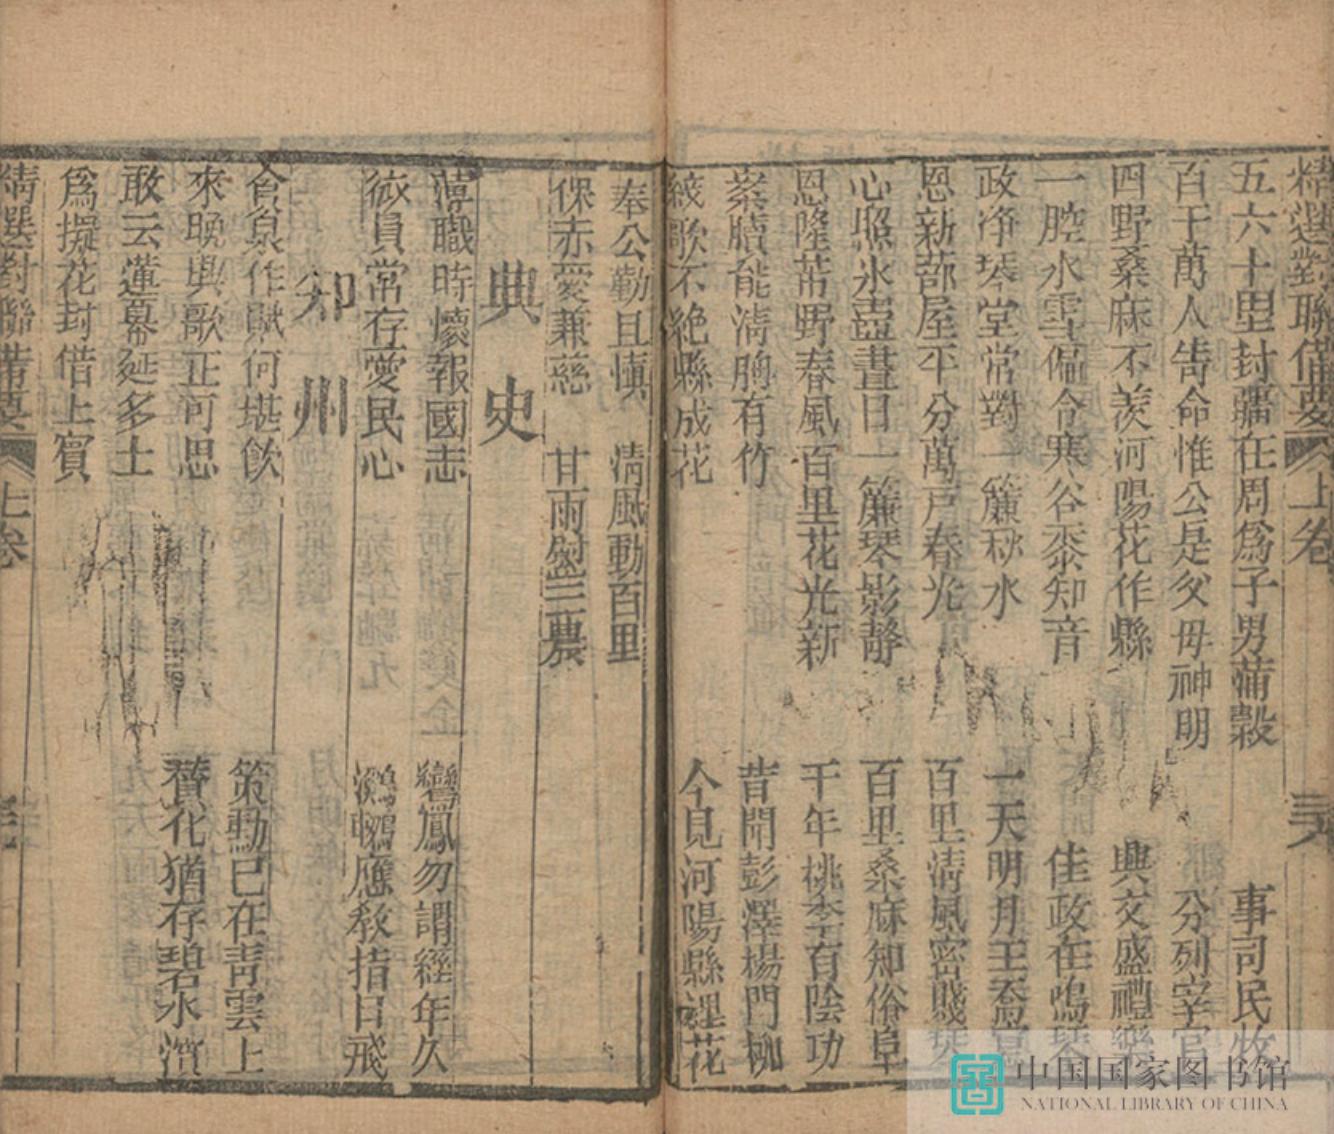 精選對聯備要 上卷
五六十里封疆在周爲子男蒲穀 事司民牧
百千萬人誥命惟公是父母神明 分列宰官
四野桑麻不羨河陽花作縣 興文盛禮樂
一腔水雪偏令寒谷黍知音 佳政在鳴琴
政净琴堂常對一簾秋水 一天明月王喬舄
恩新蔀屋平分萬戸春光 百里淸風密賤琴
心照氷壺晝日一簾琴影靜 百里桑麻知俗阜
恩隆芾野春風百里花光新 千年桃李有陰功
案牘能淸胸有竹 昔聞彭澤楊門柳
絃歌不絶縣成花 今見河陽縣裡花
奉公勤且愼 淸風動百里
保赤愛兼慈 甘雨慰三農
典史
薄職時懷報國志 鸞鳳勿謂經年久
微員常存愛民心 鸂鶒應敎指日飛
知州
貪泉作賦何堪飲 策勳已在靑雲上
來晚輿歌正可思 賛化猶存碧水濱
敢云蓮幕延多士
爲擬花封借上賓
精選對聯備要 上卷
中国国家图书馆
NATIONAL LIBRARY OF CHINA